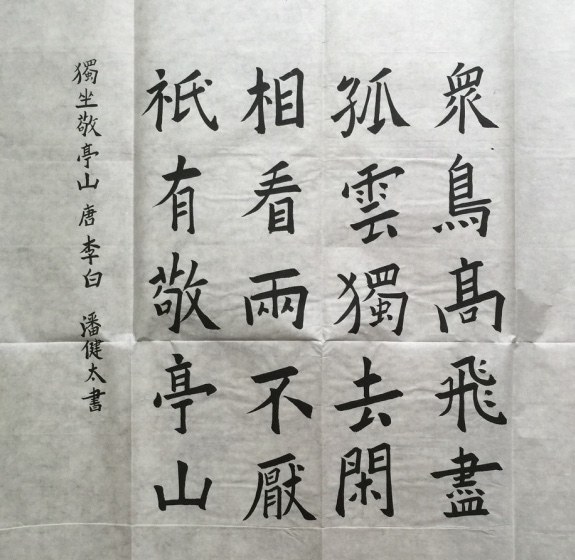 眾鳥高飛盡
孤雲獨去閑
相看兩不厭
祇有敬亭山
獨坐敬亭山 唐 李白 潘健太書